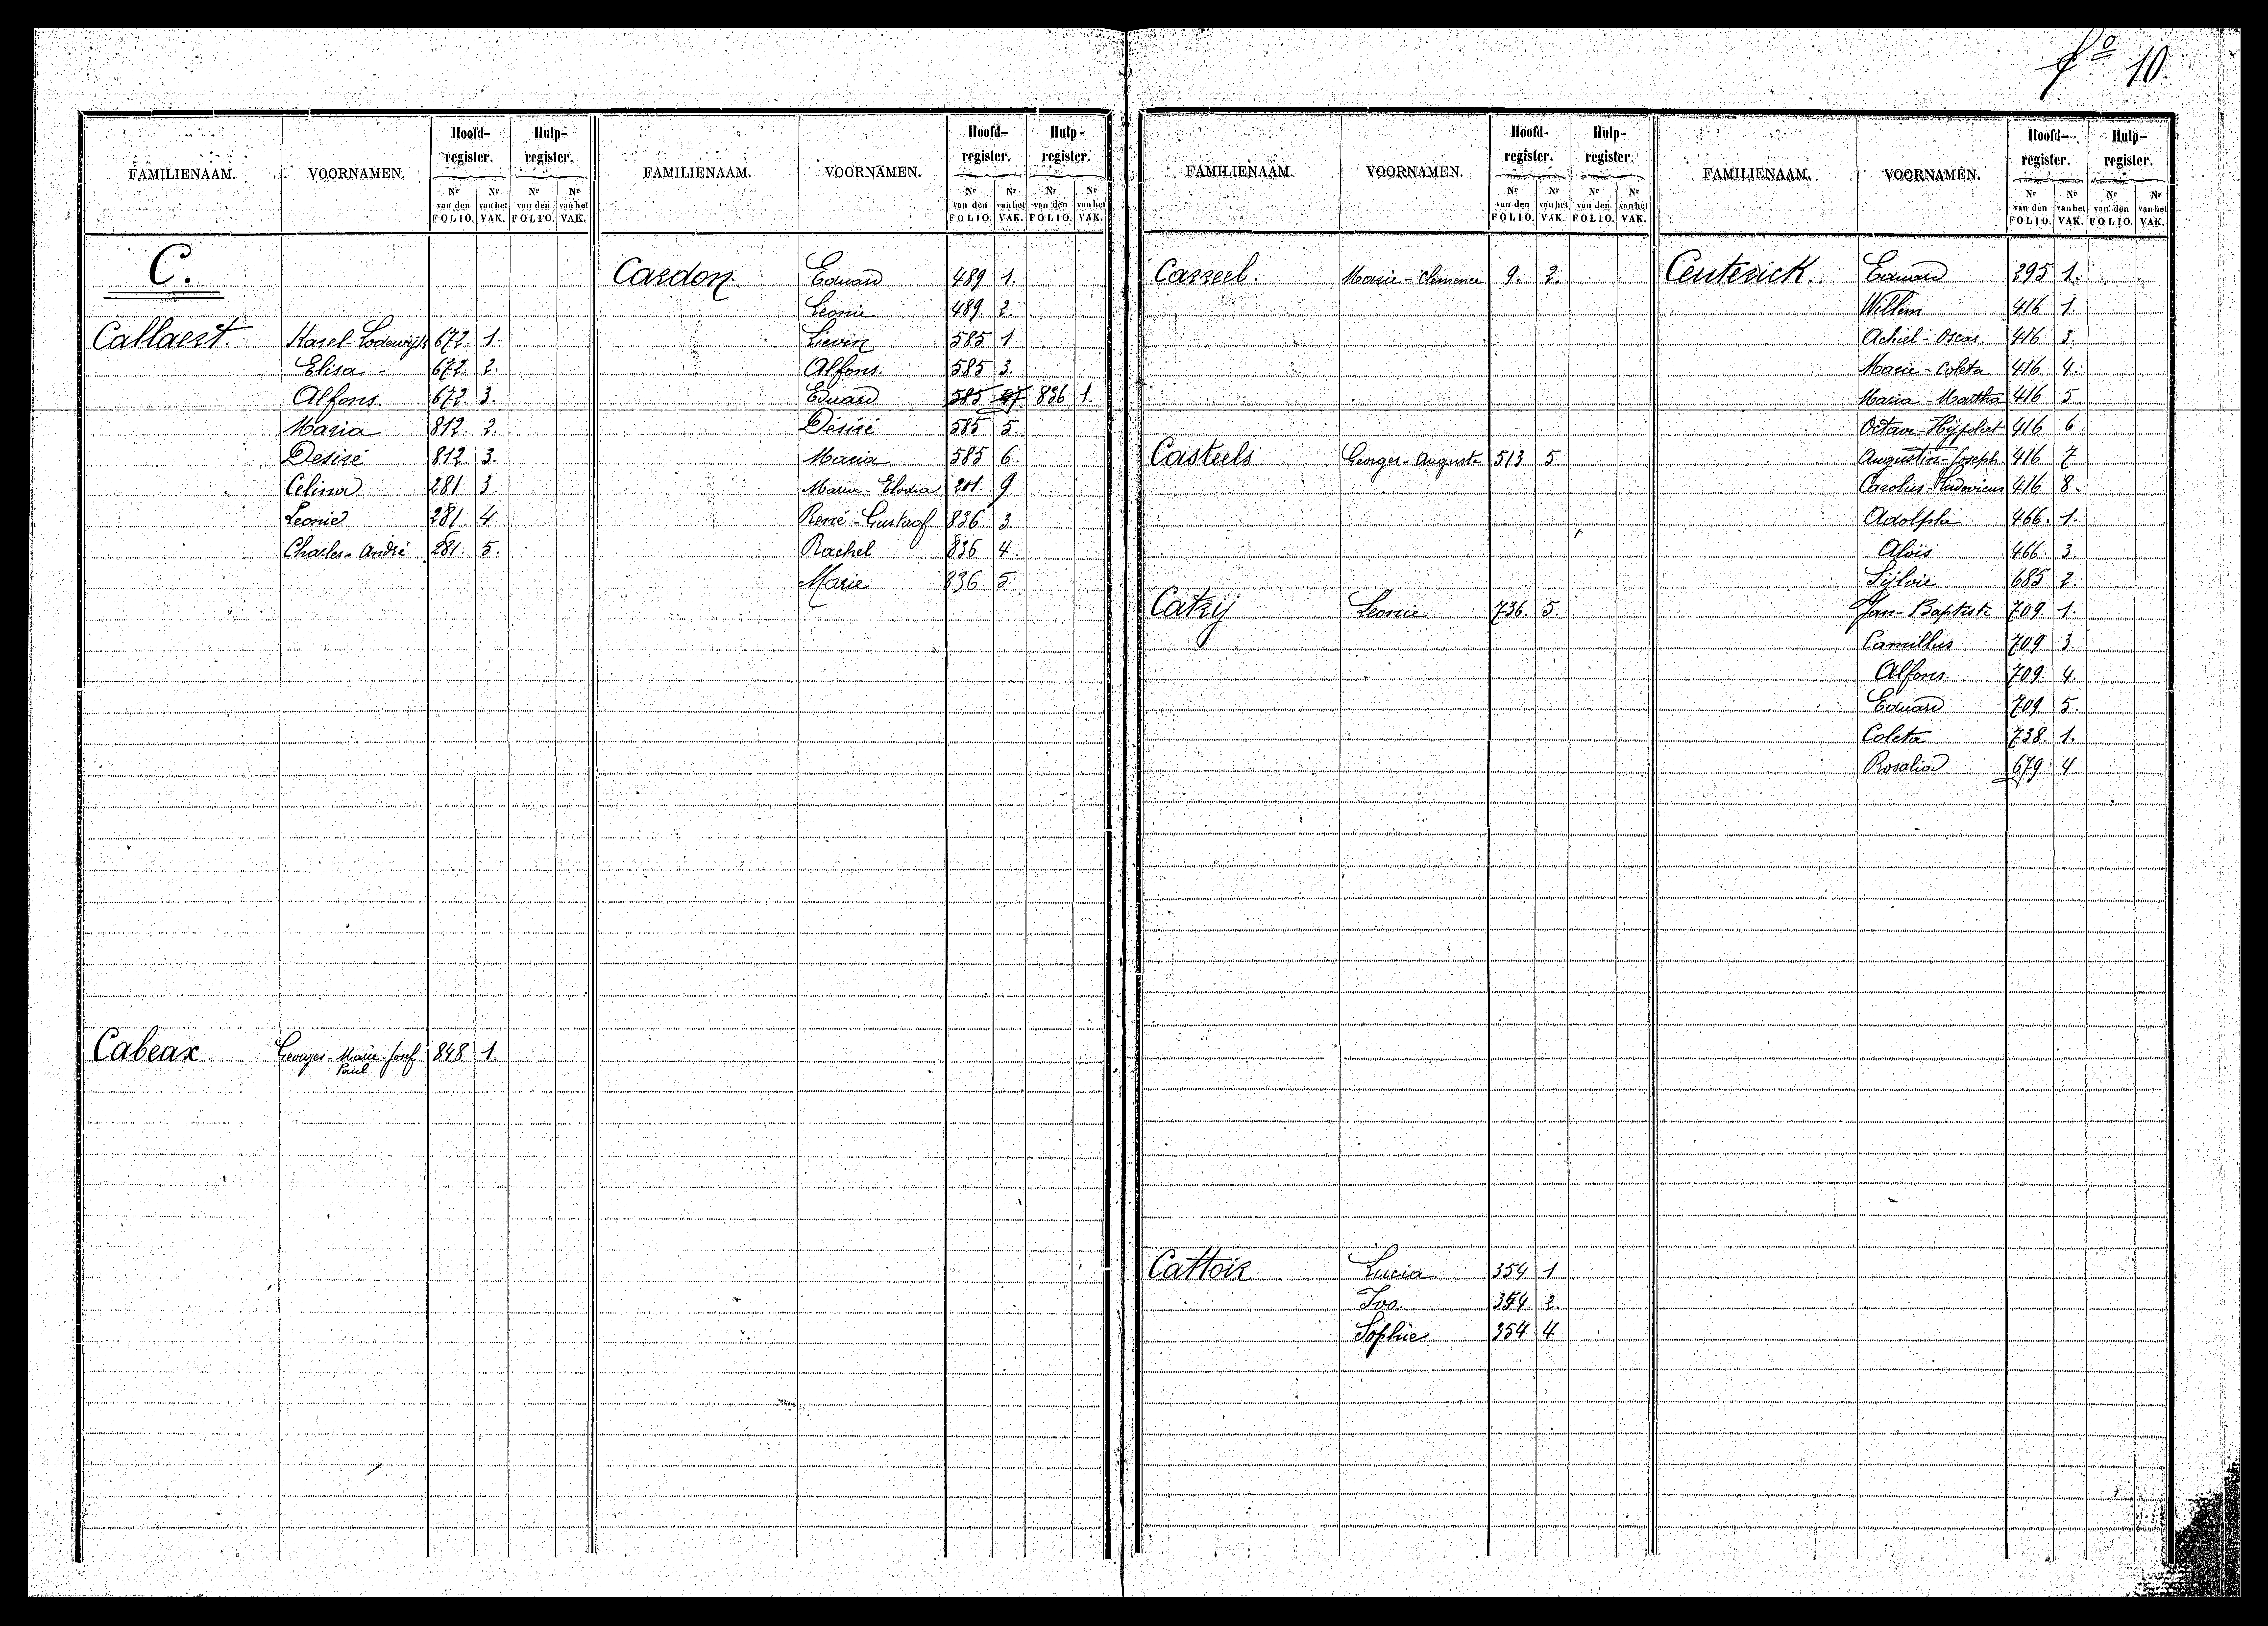 fo 10.
FAMILIENAAM. VOORNAMEN. Hoofd-register. Hulp-register.
Nr van den FOLIO. Nr van het VAK. Nr van den FOLIO. Nr van het VAK.
C.
Callaert. Karel-Lodewijk 672. 1.
Elisa - 672. 2.
Alfons. 672. 3.
Maria 812. 2.
Désiré 812. 3.
Celina 281 3.
Leonie 281. 4
Charles-André 281. 5.
Cabeax. Georges-Marie-Josef 848 1.
Paul
FAMILIENAAM. VOORNAMEN. Hoofd-register. Hulp-register.
Nr van den FOLIO. Nr van het VAK. Nr van den FOLIO. Nr van het VAK.
Cardon. Eduard 489 1.
Leonie 489. 2.
Lievin 585 1.
Alfons. 585 3.
Eduard 585 836 1.
Désiré 585 5.
Maria 585 6.
Maria-Elodia 201. 9.
René-Gustaaf 836. 3.
Rachel 836 4.
Marie 836 5
FAMILIENAAM. VOORNAMEN. Hoofd-register. Hulp-register.
Nr van den FOLIO. Nr van het VAK. Nr van den FOLIO. Nr van het VAK.
Carreel. Marie-Clemence 9. 2.
Casteels Georges-Auguste 513 5.
Catrij Leonie 736. 5.
Cattoir Lucia 354 1
Ivo. 354. 2.
Sophie 354 4.
FAMILIENAAM. VOORNAMEN. Hoofd-register. Hulp-register.
Nr van den FOLIO. Nr van het VAK. Nr van den FOLIO. Nr van het VAK.
Centerick. Eduard 295 1.
Willem 416 1.
Achiel-Oscar 416 3.
Marie-Coleta 416 4.
Maria-Martha 416 5
Octave-Hijpoliet 416 6
Augustin-Joseph. 416 7
Carolus-Ludovicus 416 8.
Adolphe 466. 1.
Aloïs 466. 3.
Sijlvie 685 2.
Jan-Baptiste 709. 1.
Camillus 709 3.
Alfons. 709. 4.
Eduard 709 5.
Coleta 738. 1.
Rosalia 679. 4